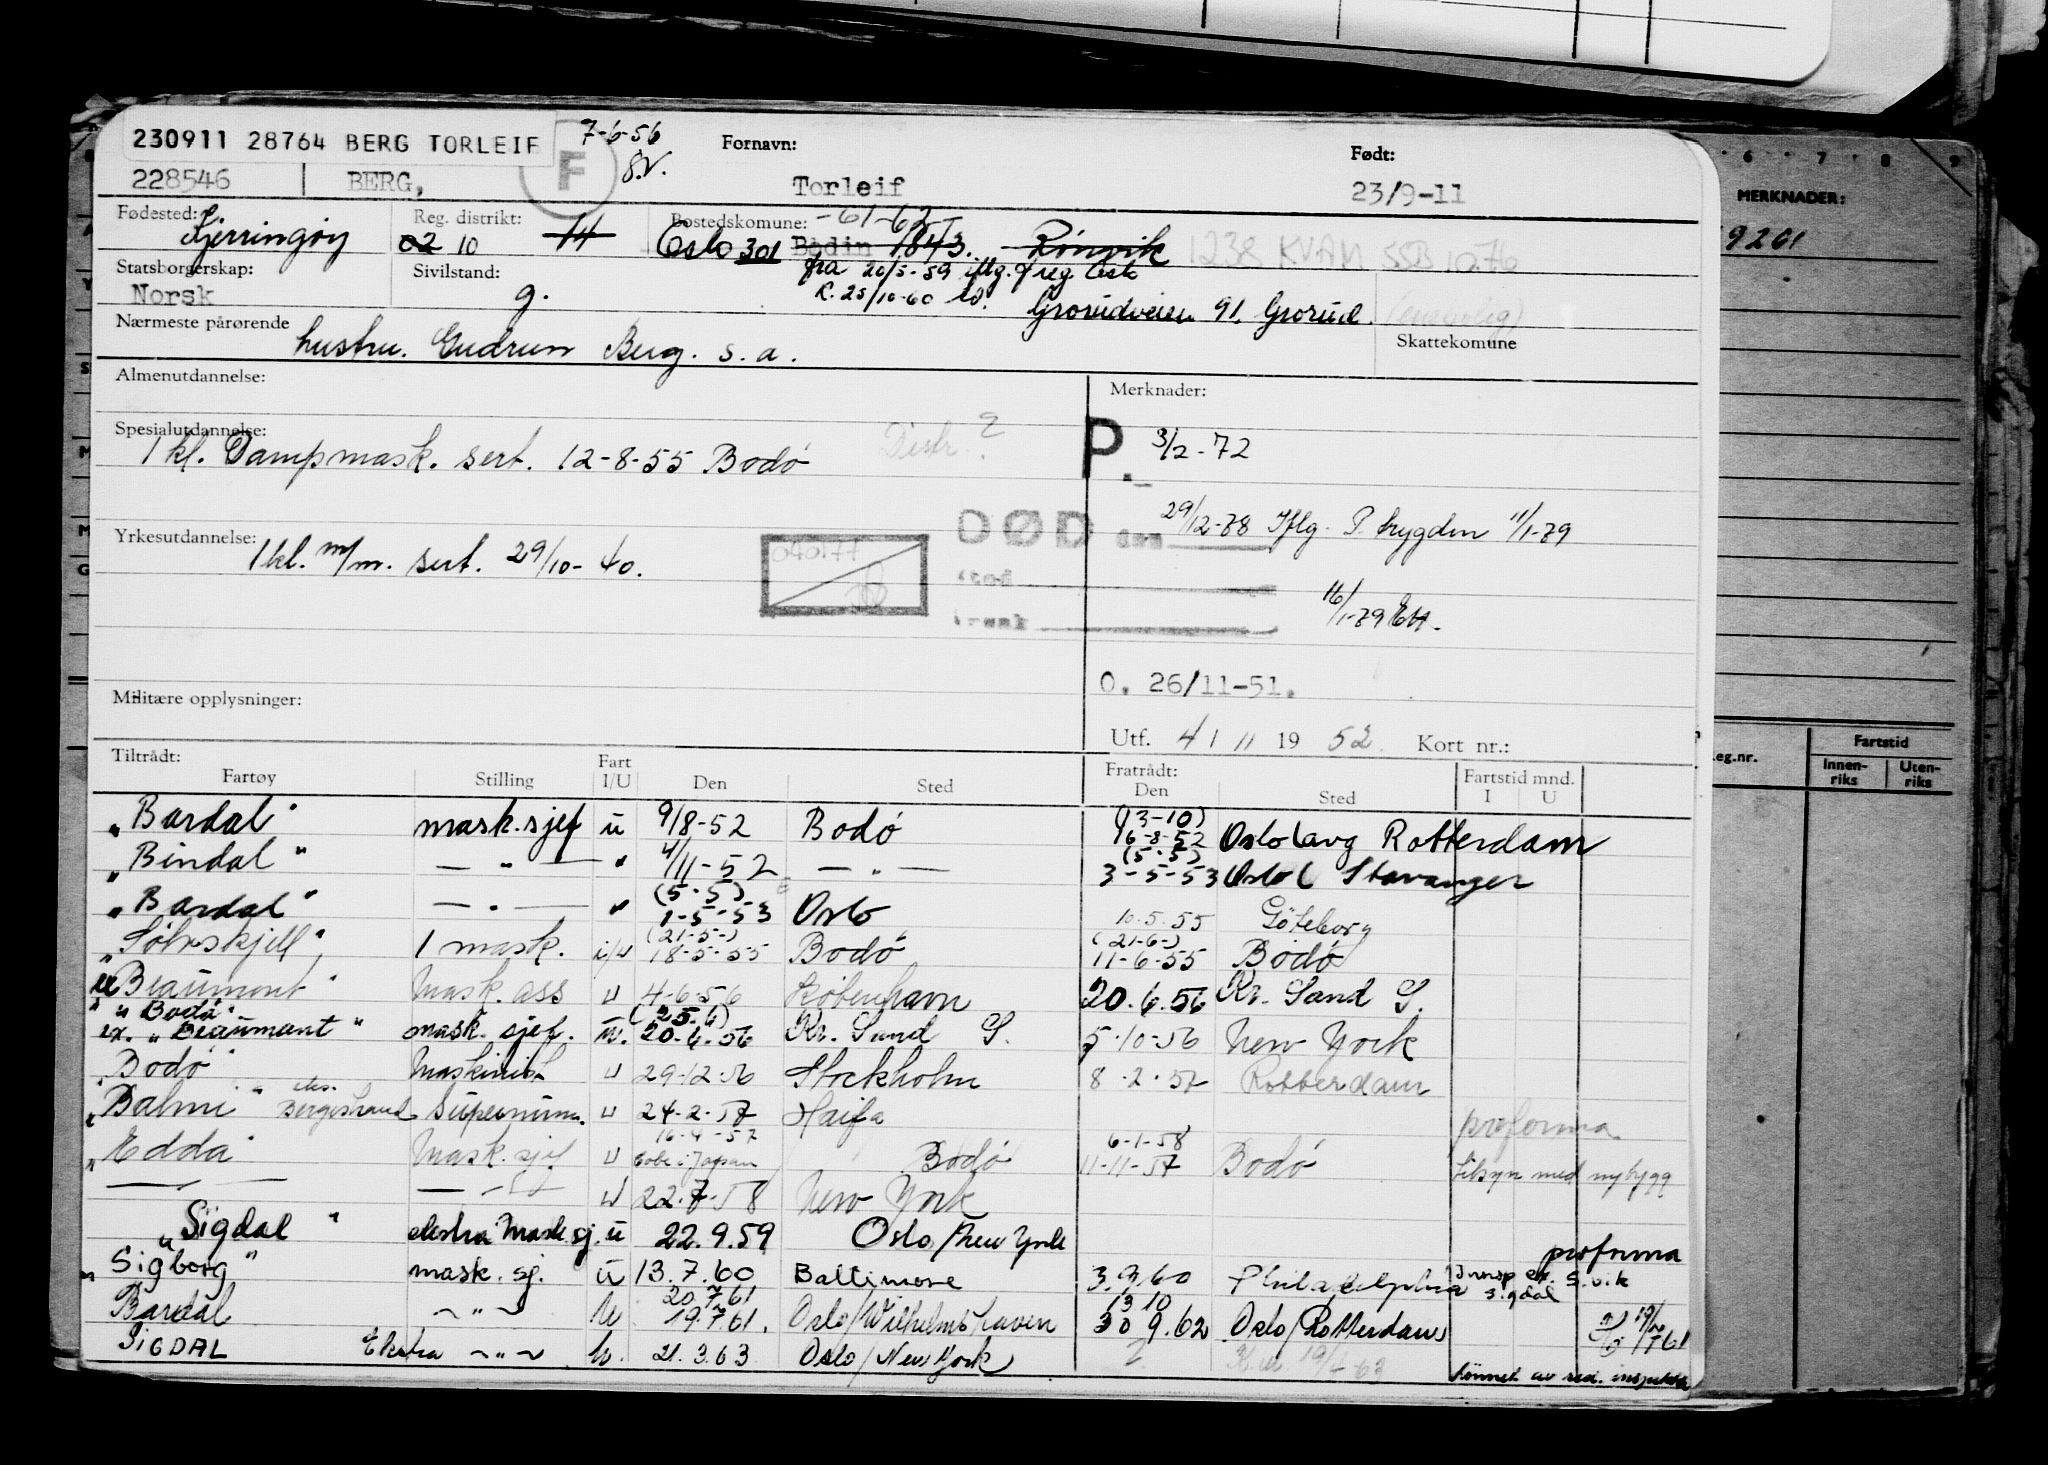 230911 28764 BERG TORLEIF F 7-6-56 Fornavn: Født:
228546 BERG, S.V. Torleif 23/9-11
Fødested: Kjerringøy Reg. distrikt: 02 10 14 Bostedskomune: -61-62 Oslo 301 Bodin 1843. Rønvik 1238 KVAM SSB 10.76
Statsborgerskap: Norsk Sivilstand: g. fra 20/5-59 iflg. reg Oslo
R. 25/10-60 Grorudveien 91. Grorud.
Nærmeste pårørende hustru. Gudrun Berg. s. a. Skattekomune
Almenutdannelse: Merknader:
Spesialutdannelse: 1 kl. Dampmask. sert. 12-8-55 Bodø Distr. ? P. 3/2-72
DØD den 29/12-78 Iflg. P. trygden 11/1-79
Yrkesutdannelse: 1 kl. m/m. sert. 29/10-40. 040177
sted
årsak 16/1-79
O. 26/11-51.
Militære opplysninger:
Utf. 4/11 1952 Kort nr.:
Tiltrådt: Fratrådt: Fartstid mnd.
Fartøy Stilling Fart I/U Den Sted Den Sted I U
"Bardal" mask.sjef u 9/8-52 Bodø (13-10) 6-8-52 Oslo/avg Rotterdam
"Bindal" — " — " 4/11-52 — " — (5-5) 3-5-53 Oslo Stavanger
"Bardal" — " — " (5-5) 1-5-53 Oslo 10.5.55 Göteborg
"Sølvskjell" 1 mask. i/u (21-5-) 18-5-55 Bodø (21-6-) 11-6-55 Bodø
"Beaumont" Mask. ass u 4-6-56 København 20.6.56 Kr. Sand S.
"Bodø" ex. "Beaumont" mask. sjef. u. (25.6) 20-6-56 Kr. Sand S. 5-10-56 New York
"Bodø" Maskinist u 29-12-56 Stockholm 8-2-57 Rotterdam
"Balmi" Bergestrand Supernum. u 24-2-57 Haifa proforma
"Edda" Mask. sjef u 16-4-57 Kobe i Japan Bodø 6-1-58 11-11-57 Bodø tilsyn med nybygg
— — — " — u 22-7-58 New York
"Sigdal" ekstra mask. sj. u 22.9.59 Oslo/New York proforma
"Sigborg" mask. sj. u 13.7.60 Baltimore 3.9.60 Philadelphia
Bardal ~ " ~ u 20/7 61 19.7.61. Oslo/Wilhelmshaven 13 10 30 9.62 Oslo/Rotterdam
SIGDAL Ekstra ~ " ~ u. 21.3.63 Oslo/New York lønnet av red. inspektør
MERKNADER:
9201
Reg.nr. Fartstid
Innen-riks Uten-riks
6 7 8 9